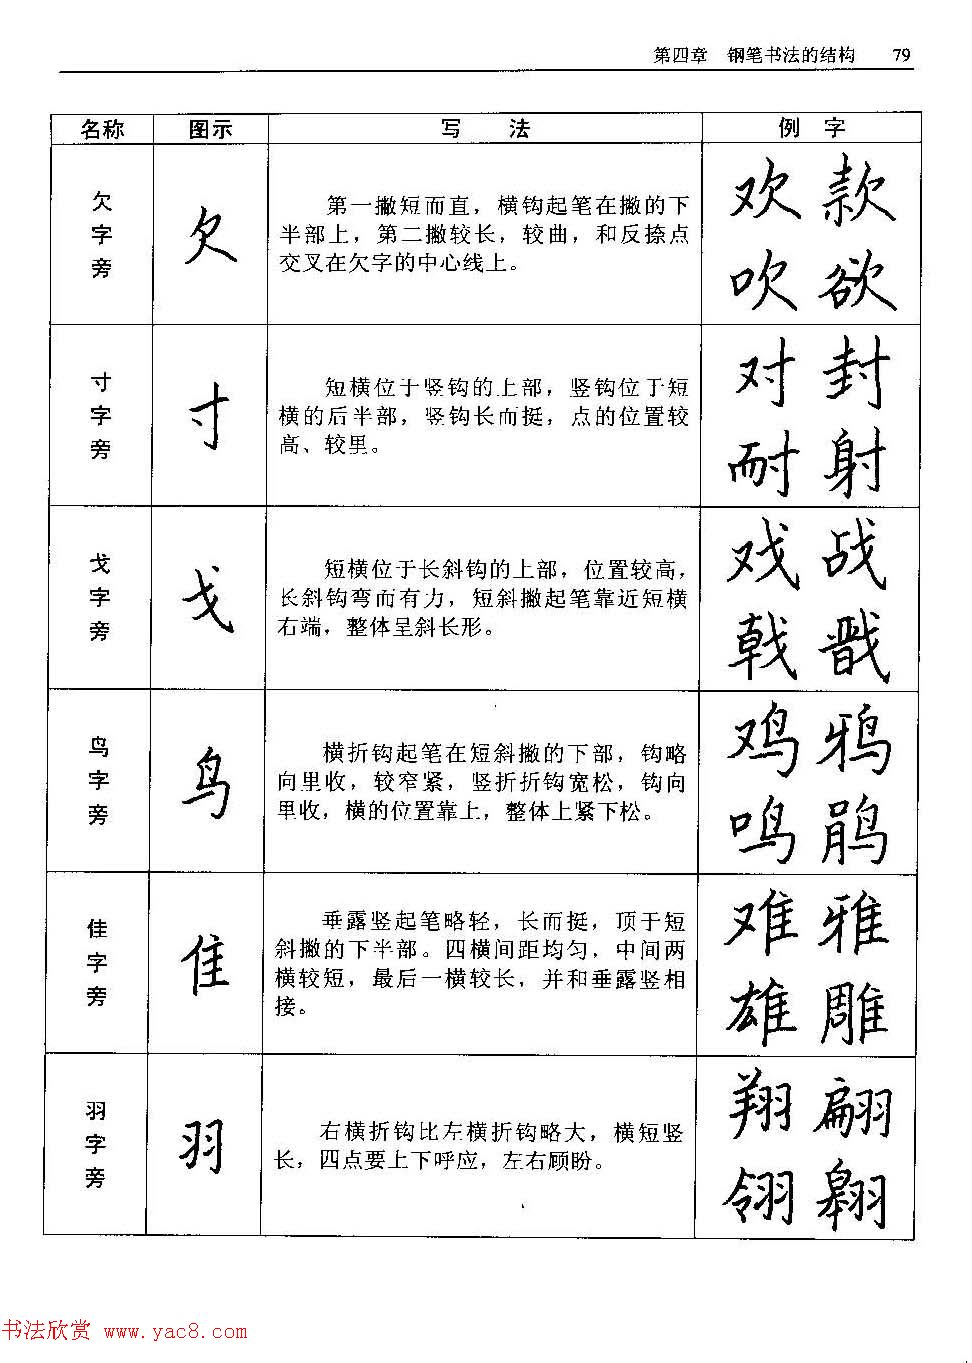 第四章 钢笔书法的结构 79
名称 图示 写 法 例 字
欠字旁
欠
第一撇短而直，横钩起笔在撇的下
半部上，第二撇较长，较曲，和反捺点
交叉在欠字的中心线上。
欢 款
吹 欲
寸字旁
寸
短横位于竖钩的上部，竖钩位于短
横的后半部，竖钩长而挺，点的位置较
高、较里。
对 封
耐 射
戈字旁
戈
短横位于长斜钩的上部，位置较高，
长斜钩弯而有力，短斜撇起笔靠近短横
右端，整体呈斜长形。
戏 战
戟 戬
鸟字旁
鸟
横折钩起笔在短斜撇的下部，钩略
向里收，较窄紧，竖折折钩宽松，钩向
里收，横的位置靠上，整体上紧下松。
鸡 鸦
鸣 鹃
佳字旁
隹
垂露竖起笔略轻，长而挺，顶于短
斜撇的下半部。四横间距均匀，中间两
横较短，最后一横较长，并和垂露竖相
接。
难 雅
雄 雕
羽字旁
羽
右横折钩比左横折钩略大，横短竖
长，四点要上下呼应，左右顾盼。
翔 翩
翎 翱
书法欣赏 www.yac8.com